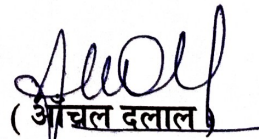 ( आँचल दलाल )